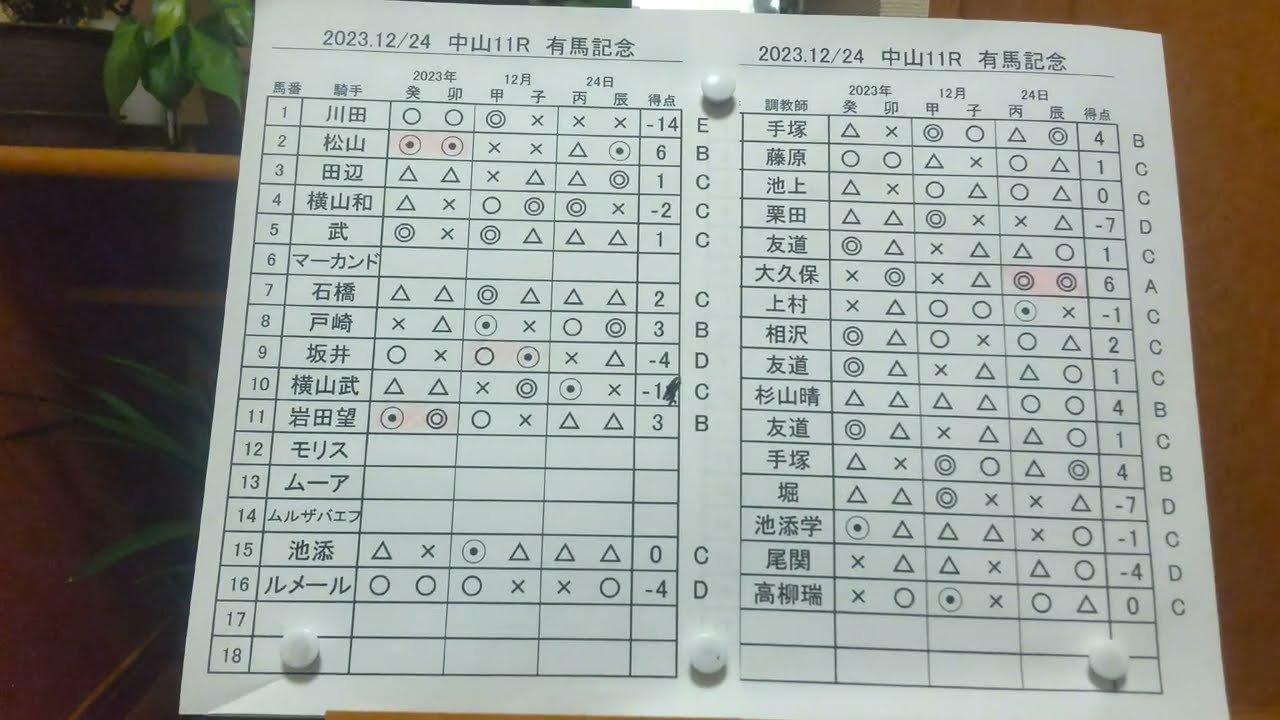 2023.12/24 中山11R 有馬記念
2023年 12月 24日
馬番 騎手 癸 卯 甲 子 丙 辰 得点
1 川田 ○ ○ ◎ × × × -14 E
2 松山 ☉ ☉ × × △ ☉ 6 B
3 田辺 △ △ × △ △ ◎ 1 C
4 横山和 △ × ○ ◎ ◎ × -2 C
5 武 ◎ × ◎ △ △ △ 1 C
6 マーカンド
7 石橋 △ △ ◎ △ △ △ 2 C
8 戸崎 × △ ☉ × ○ ◎ 3 B
9 坂井 ○ × ○ ☉ × △ -4 D
10 横山武 △ △ × ◎ ☉ × -1 C
11 岩田望 ☉ ◎ ○ × △ △ 3 B
12 モリス
13 ムーア
14 ムルザバエフ
15 池添 △ × ☉ △ △ △ 0 C
16 ルメール ○ ○ ○ × × ○ -4 D
17
18
2023.12/24 中山11R 有馬記念
2023年 12月 24日
調教師 癸 卯 甲 子 丙 辰 得点
手塚 △ × ◎ ○ △ ◎ 4 B
藤原 ○ ○ △ × ○ △ 1 C
池上 △ × ○ △ ○ △ 0 C
栗田 △ △ ◎ × × △ -7 D
友道 ◎ △ × △ △ ○ 1 C
大久保 × ◎ × △ ◎ ◎ 6 A
上村 × △ ○ ○ ☉ × -1 C
相沢 ◎ △ ○ × ○ △ 2 C
友道 ◎ △ × △ △ ○ 1 C
杉山晴 △ △ △ △ ○ ○ 4 B
友道 ◎ △ × △ △ ○ 1 C
手塚 △ × ◎ ○ △ ◎ 4 B
堀 △ △ ◎ × × △ -7 D
池添学 ☉ △ △ △ × ○ -1 C
尾関 × △ △ × △ ○ -4 D
高柳瑞 × ○ ☉ × ○ △ 0 C